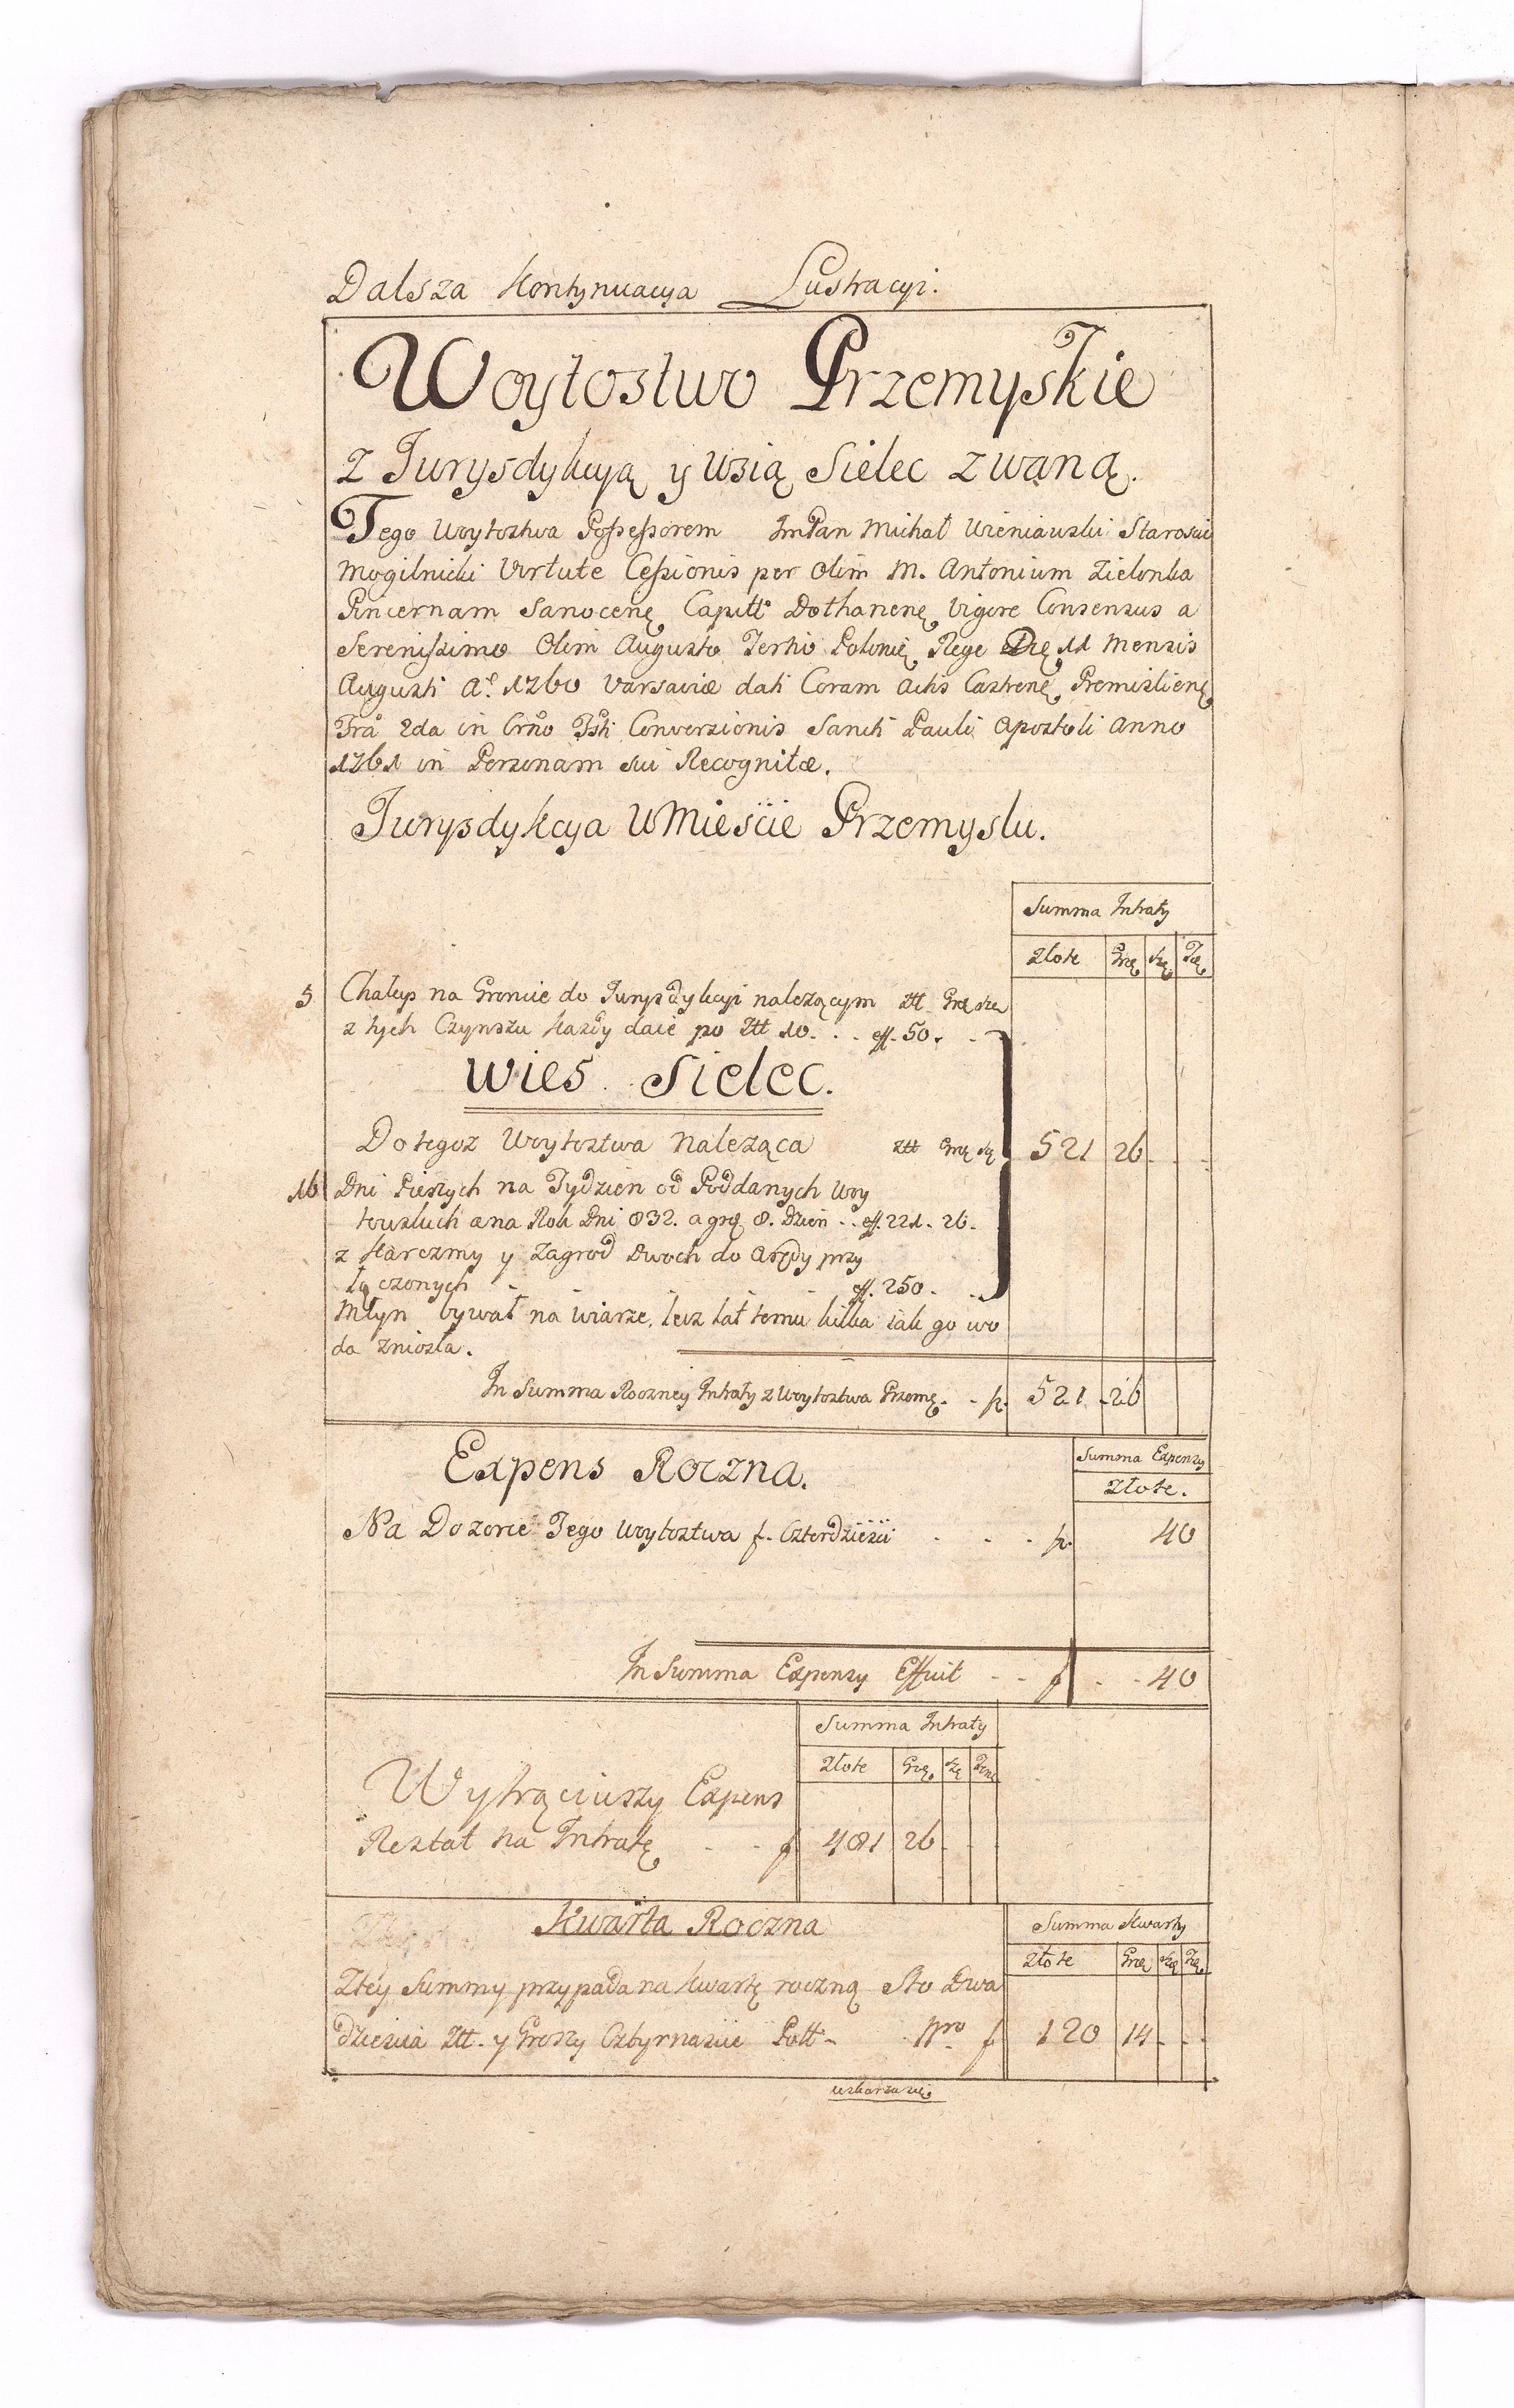 Dalsza Kontynuacya Lustracyi.
Woytostwo Przemyskie
z Jurysdykcyą y Wsią Sielec zwaną.
Tego Woytostwa Possessorem ImPan Michał Wieniawski Starosta
Mogilnicki Virtute Cessionis per Olim M. Antonium Zielonka
Pincernam Sanocenę Capitt Dothanenę vigore Consensus a
Serenissimo Olim Augusto Tertio Polonię Rege Dię 11 Mensis
Augusti Aº 1760 Varsaviæ dati Coram Actis Castrenę Premislienę
Frâ 2da in Crño Fsti Conversionis Sancti Pauli Apostoli Anno
1761 in Personam sui Recognitæ.
Jurysdykcya w Mieście Przemyslu.
Summa Intraty
Złote Grę Szę
5 Chałup na Groncie do Jurysdykcyi należącym Ztt Grę Szę
z tych Czynszu każdy daie po Ztt 10. . . eff. 50. -
Wies Sielec.
Do tegoz Woytostwa Należąca Ztt Grę Szę 521 26 - - -
16 Dni Pieszych na Tydzien od Poddanych Woy
towskich a na Rok Dni 832. a grę 8. Dzien . . eff. 221. 26.
z Karczmy y Zagrod Dwoch do Arędy przy
łączonych - - - - eff. 250. - -
Młyn bywał na Wiarze, lecz lat temu kilka iak go wo
da zniosła.
In Summa Roczney Intraty z Woytostwa Przemę. - f. 521 . 26
Expens Roczna.
Summa Expensy
Złote.
Na Dozorcę Tego Woytostwa f. Czterdzieści - - - f. 40
In Summa Expensy Effuit - - f - - 40
Summa Intraty
Złote Grę Szę
Wytrąciwszy Expens
Restat na Intratę - - f 481 26
Kwarta Roczna
Summa Kwarty
Złote Grę Szę
Ztey Summy przypada na kwartę roczną Sto Dwa
dziescia Ztt. y Groszy Cztyrnascie Połtt - Pro f 120 14 - - -